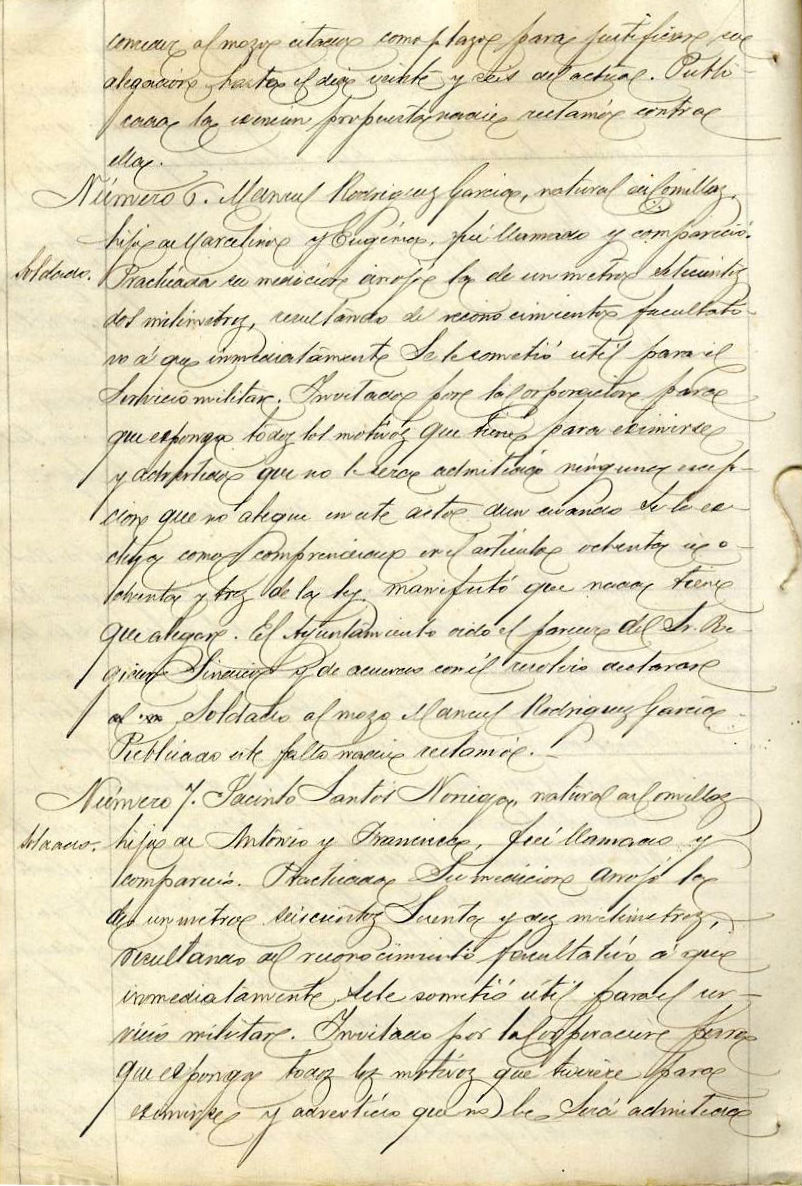 conceder al mozo citado como plazo para justificar su
alegación hasta el dia veinte y seis del actual. Publi-
cada la exención propuesta nadie reclamó contra
ella.
Número 6. Manuel Rodriguez Garcia, natural de Comillas,
hijo de Marcelino y Eugénia, fué llamado y compareció.
Soldado.
Practicada su medicion arrojó la de un metro setecientos
dos milimetros, resultando de reconocimiento facultati-
vo á que inmediatamente se le sometió util para el
servicio militar. Invitado por la Corporacion para
que esponga todos los motivos que tiene para eximirse
y advertido que no le sera admitida ninguna escep-
cion que no alegue en este acto aun cuando se le es-
cluya como comprendido en el articulo ochenta ú o-
chenta y tres de la ley manifestó que nada tiene
que alegar. El Ayuntamiento oido el parecer del Sr. Re-
gidor Sindico y de acuerdo con él resolvio declarar
Soldado al mozo Manuel Rodriguez Garcia.
Publicado este fallo nadie reclamó.
Número 7. Jacinto Santos Noriega, natural de Comillas
Soldado.
hijo de Antonio y Francisca, fué llamado y
compareció. Practicada su medicion arrojó la
de un metro seiscientos sesenta y dos milimetros,
resultando del reconocimiento facultativo á que
inmediatamente se le sometió útil para el ser-
vicio militar. Invitado por la Corporacion para
que esponga todos los motivos que tuviere para
eximirse y advertido que no le será admitida